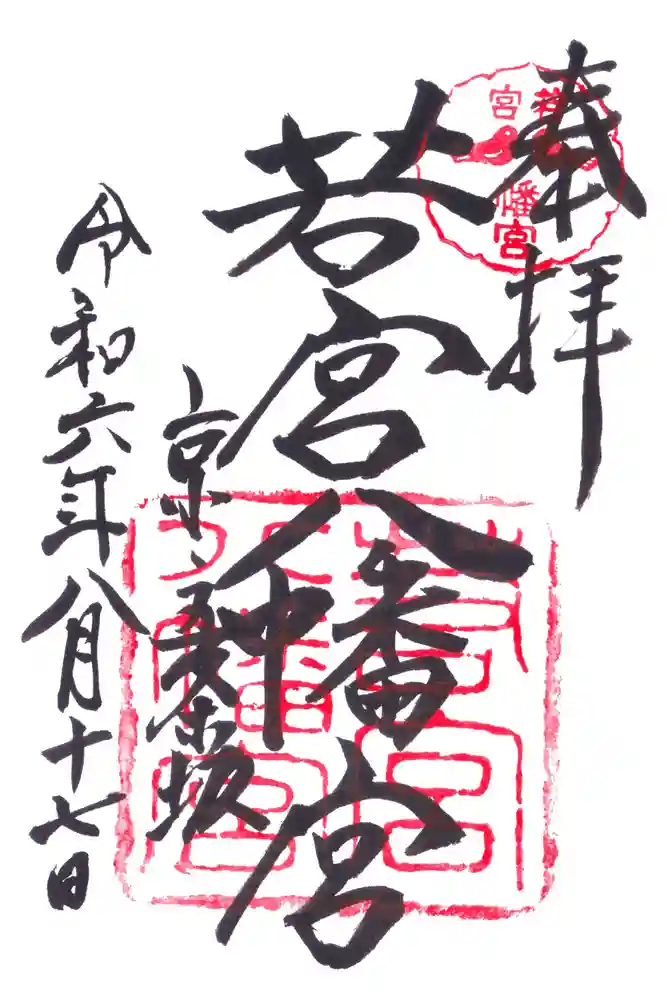 奉拝
若宮八幡宮
京五条坂
令和六年八月十七日
若宮八幡宮
若宮八幡宮